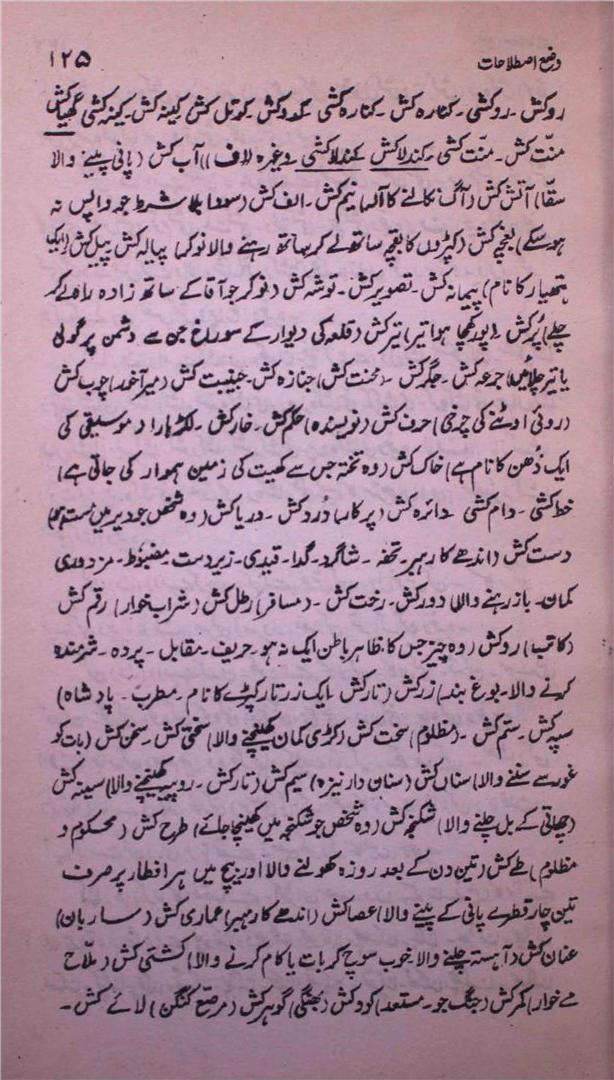 وضع اصطلاحات
۱۲۵
روکش۔ روکشی۔ کنارہ کش۔ کنارہ کشی۔ کدوکش۔ کوتل کش۔ کینہ کش۔ کینہ کشی۔ گھیا کش
منّت کش۔ منّت کشی۔ کندلا کش۔ کندلا کشی۔ وغیرہ (الف) آب کش (پانی پلینے والا
سقّا) آتش کش (آگ نکالنے کا آلہ) نیم کش۔ الف کش (سودا بلا شرط جو واپس نہ
ہو سکے) بغچے کش (کپڑوں کا بقچہ ساتھ لے کر ساتھ رہنے والا نوکر) پیالہ کش پیل کش (ایک
ہتھیار کا نام) پیمانہ کش۔ تصویر کش۔ توشہ کش (نوکر جو آقا کے ساتھ زادہ راہ لے کر
چلے) پُر کش (پورا کھچا ہوا تیر) تیر کش (قلعہ کی دیوار کے سوراخ جن سے دشمن پر گولی
یا تیر چلائیں) جرعہ کش۔ جگر کش۔ (محنت کش) جنازہ کش۔ جنیبت کش (میر آخور) چوب کش
(روئی اوٹنے کی چرخی) حرف کش (نویسندہ) حکم کش۔ خار کش۔ لکڑہارا (موسیقی کی
ایک دُھن کا نام ہے) خاک کش (وہ تختہ جس سے کھیت کی زمین ہموار کی جاتی ہے)
خط کشی۔ دام کشی دائرہ کش (پرکار) دُرد کش۔ دریا کش (وہ شخص جو دیر میں مست ہو)
دست کش (اندھے کا رہبر۔ تحفہ۔ شاگرد۔ گدا۔ قیدی۔ زیردست۔ مضبوط۔ مزدوری
کمان۔ باز رہنے والا) دور کش۔ رخت کش۔ (مسافر) رطل کش (شراب خوار) رقم کش
(کاتب) روکش (وہ چیز جس کا ظاہر باطن ایک نہ ہو۔ حریف۔ مقابل۔ پردہ۔ شرمندہ
کرنے والا۔ بوغ بند) زر کش (تار کش ایک زرتار کپڑے کا نام۔ مطرب۔ پادشاہ)
سپہ کش۔ ستم کش۔ (مظلوم) سخت کش (کڑی کمان کھینچنے والا) سختی کش۔ سخن کش (بات کو
غور سے سننے والا) سناں کش (سنان دار نیزہ) سیم کش (تار کش۔ روپیہ کھینچنے والا) سینہ کش
(چھاتی کے بل چلنے والا) شکنجہ کش (وہ شخص جو شکنجہ میں کھینچا جائے) طرح کش (محکوم و
مظلوم) طے کش (تین دن کے بعد روزہ کھولنے والا اور بیچ میں ہر افطار پر صرف
تین چار قطرے پانی کے پینے والا) عصا کش (اندھے کا رہبر) عماری کش (ساربان)
عنان کش (آہستہ چلنے والا خوب سوچ کر بات یا کام کرنے والا) کشتی کش (ملّاح
مے خوار) کمر کش (جنگ جو۔ مستعد) کود کش (بھنگی) گوہر کش (مرصّع کنگن) لائے کش۔